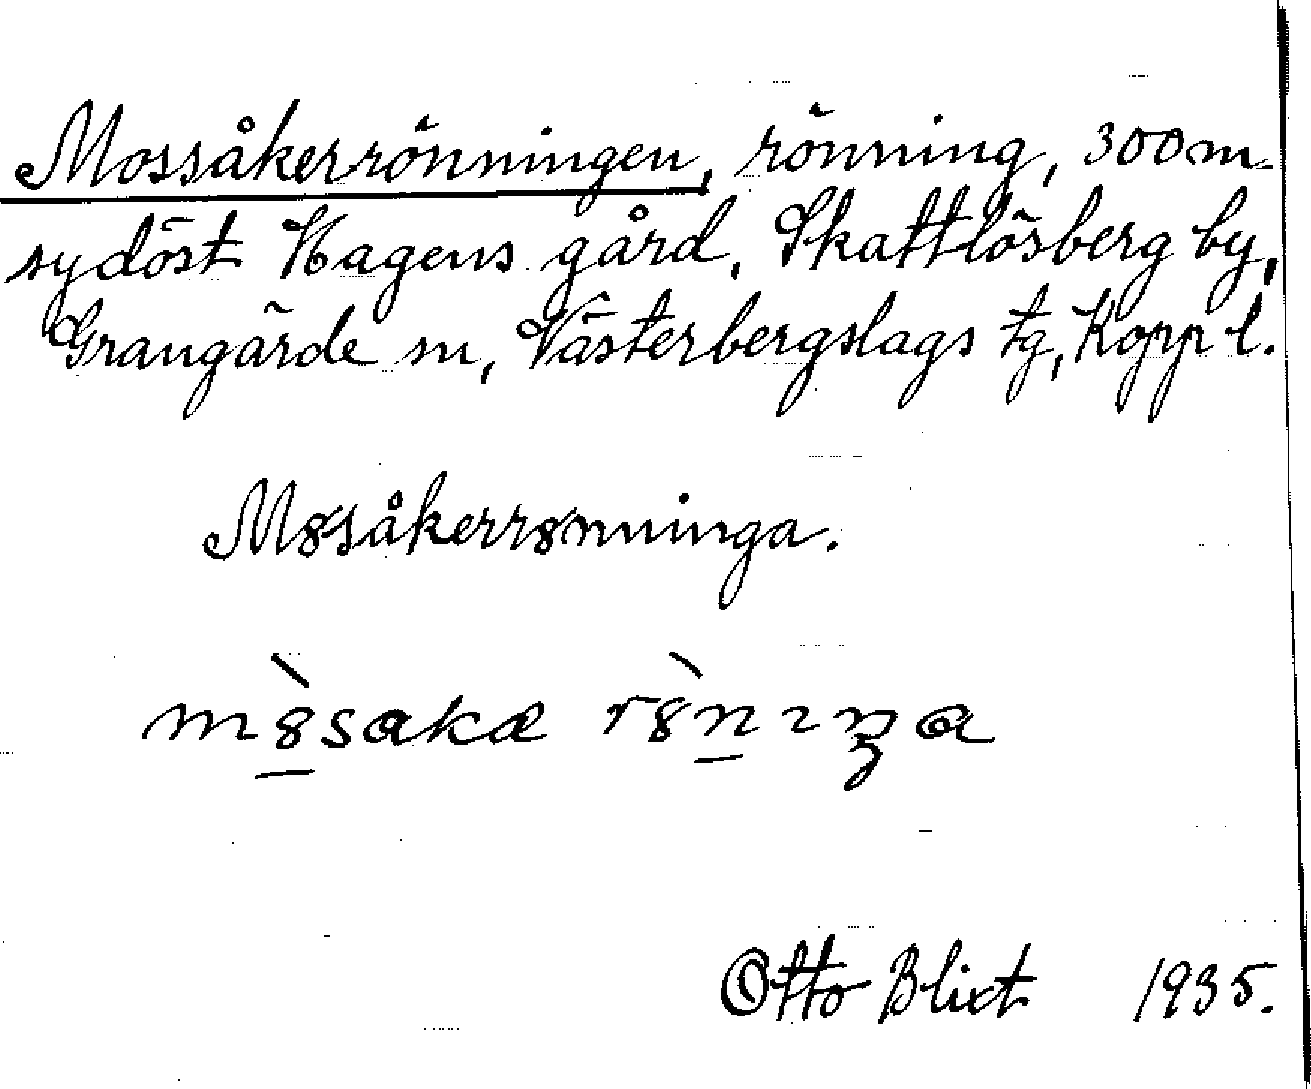 Mossåkerrönningen, rönning, 300 m
sydöst Hagens gård, Skattlösberg by,
Grangärde sn, Västerbergslags tg, Kopp l.
M8såkerr8nninga.
m8̀sakæ r8̀nıŋa
Otto Blixt 1935.